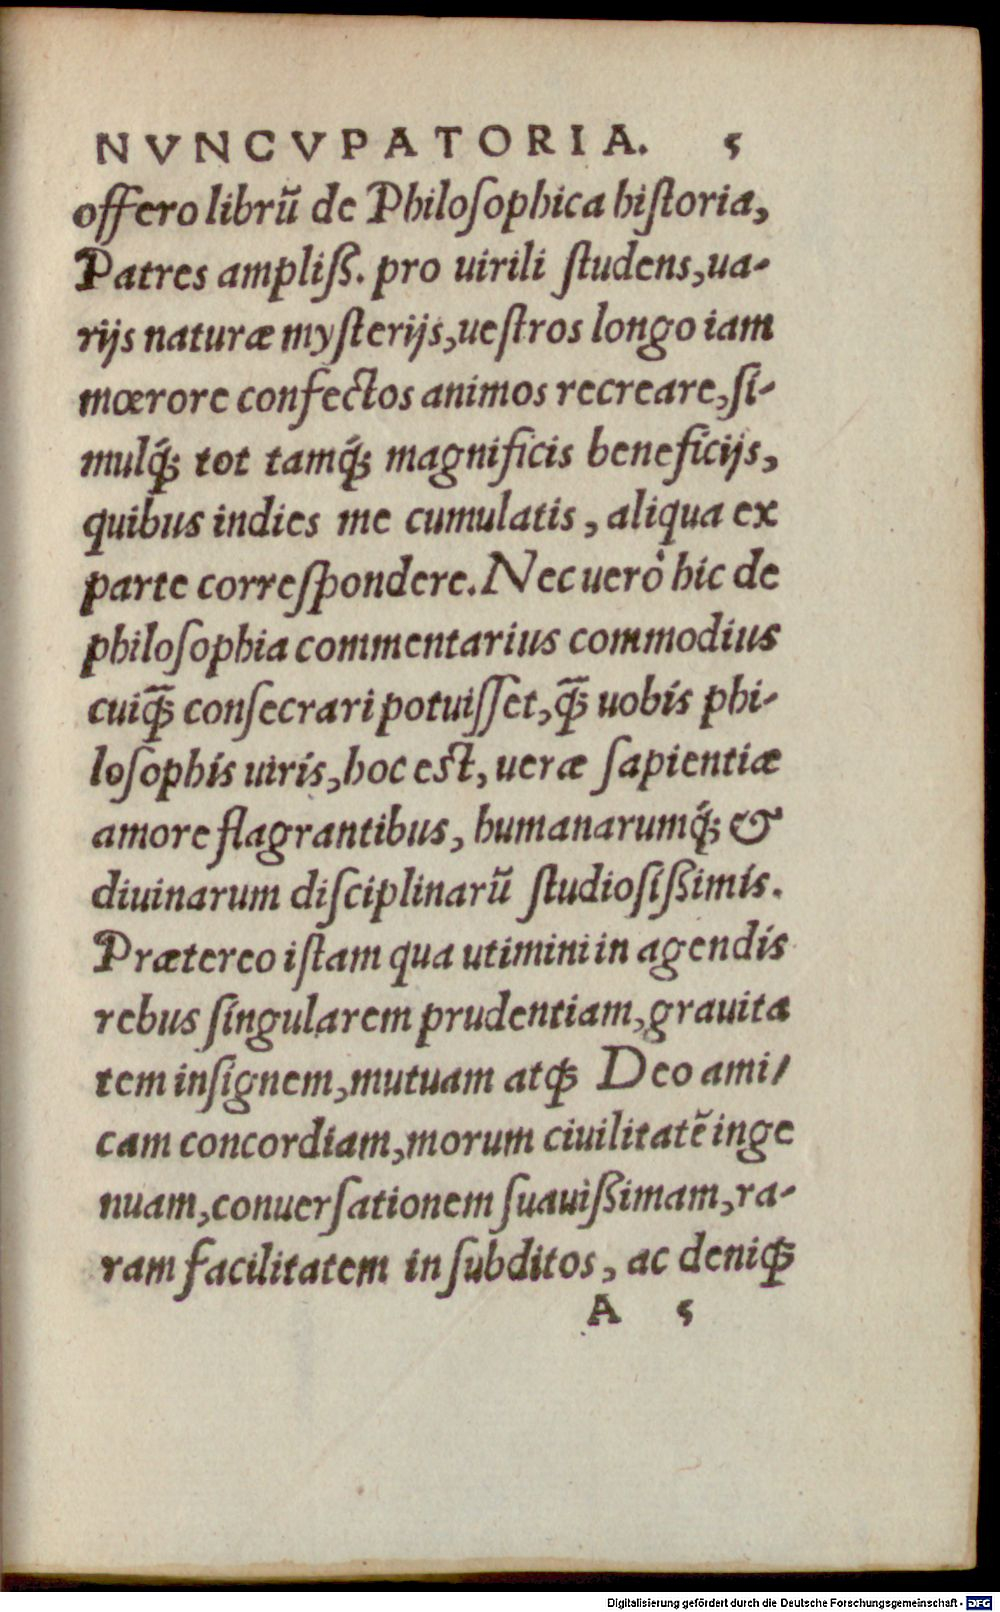 NVNCVPATORIA. 5
offero librũ de Philoſophica hiſtoria,
Patres ampliſß. pro uirili ſtudens, ua-
rijs naturæ myſterijs, ueſtros longo iam
mœrore confectos animos recreare, ſi-
mulq́; tot tamq́; magnificis beneficijs,
quibus indies me cumulatis, aliqua ex
parte correſpondere. Nec uerò hic de
philoſophia commentarius commodius
cuiq̃; conſecrari potuiſſet, q̃; uobis phi-
loſophis uiris, hoc est, ueræ ſapientiæ
amore flagrantibus, humanarumq́; &
diuinarum diſciplinarũ ſtudioſißimis.
Prætereo iſtam qua utimini in agendis
rebus ſingularem prudentiam, grauita
tem inſignem, mutuam atq; Deo ami-
cam concordiam, morum ciuilitatẽ inge
nuam, conuerſationem ſuauißimam, ra-
ram facilitatem in ſubditos, ac deniq;
A 5
Digitalisierung gefördert durch die Deutsche Forschungsgemeinschaft - DFG